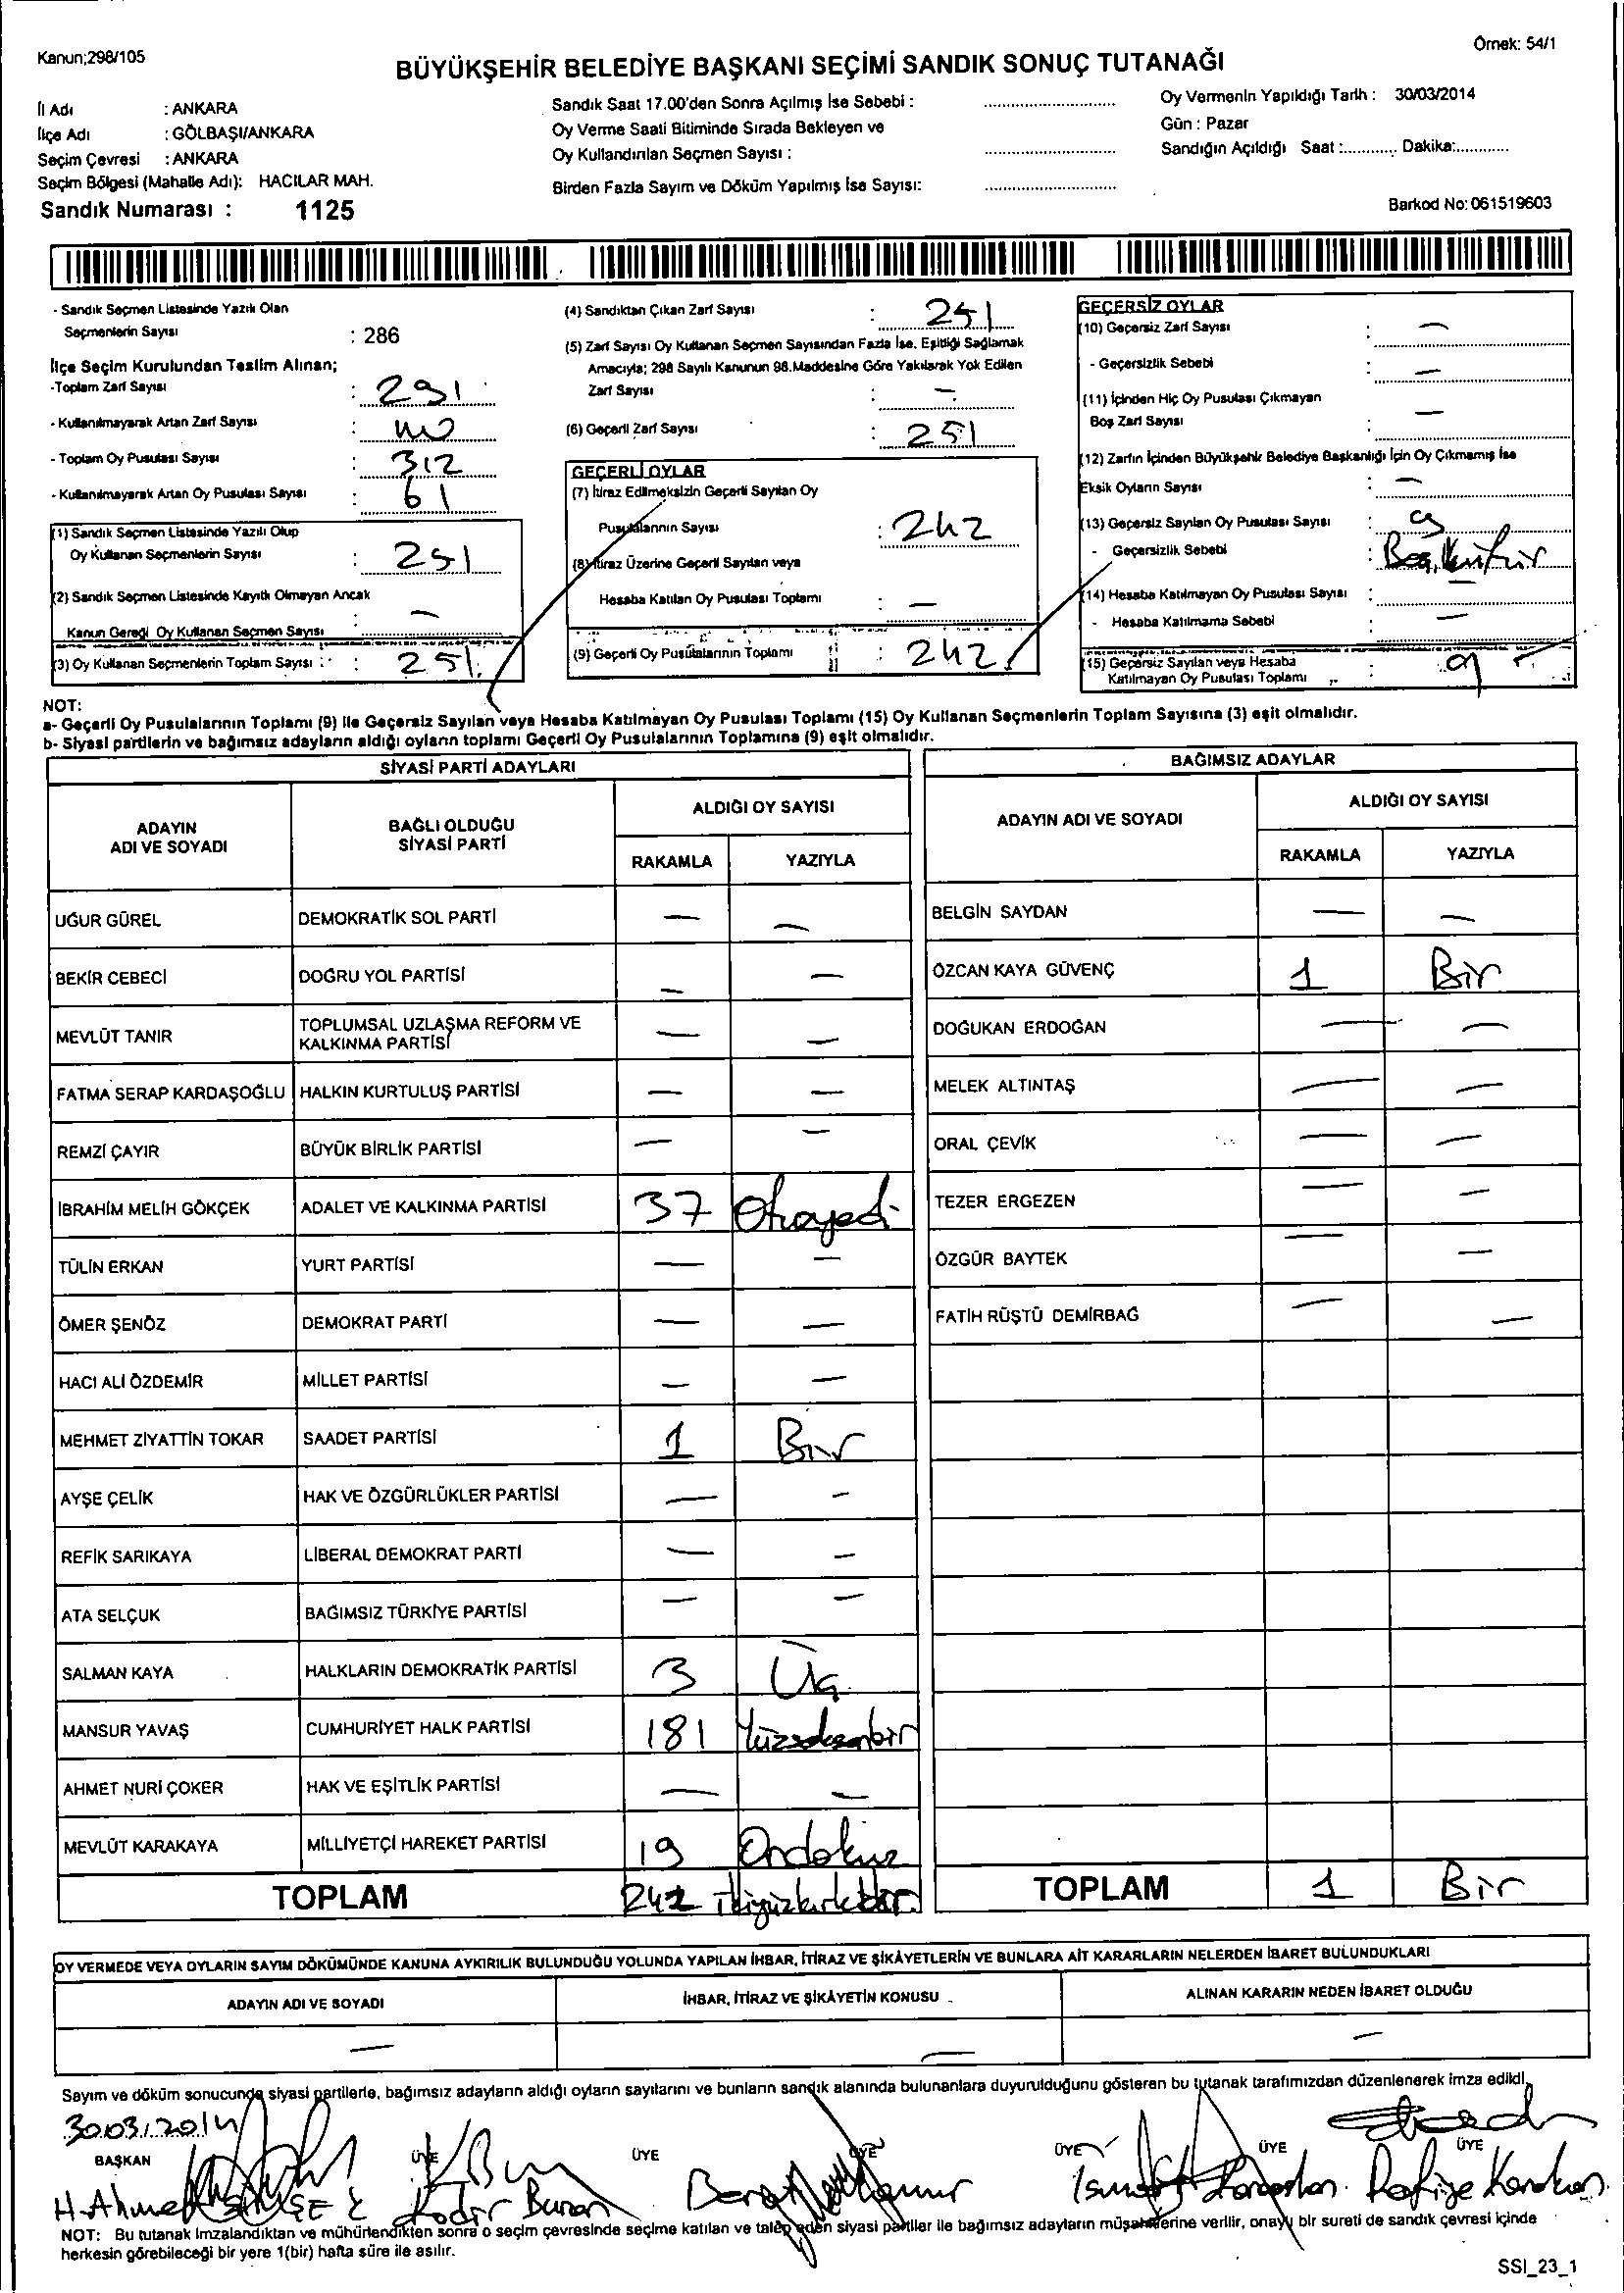 Kanun;298/105
Örnek: 54/1
BÜYÜKŞEHİR BELEDİYE BAŞKANI SEÇİMİ SANDIK SONUÇ TUTANAĞI
İl Adı : ANKARA
İlçe Adı : GÖLBAŞI/ANKARA
Seçim Çevresi : ANKARA
Seçim Bölgesi (Mahalle Adı): HACILAR MAH.
Sandık Numarası : 1125
Sandık Saat 17.00'den Sonra Açılmış İse Sebebi :
Oy Verme Saati Bitiminde Sırada Bekleyen ve
Oy Kullandırılan Seçmen Sayısı :
Birden Fazla Sayım ve Döküm Yapılmış İse Sayısı:
Oy Vermenin Yapıldığı Tarih : 30/03/2014
Gün : Pazar
Sandığın Açıldığı Saat :............ Dakika:............
Barkod No: 061519603
- Sandık Seçmen Listesinde Yazılı Olan
Seçmenlerin Sayısı : 286
İlçe Seçim Kurulundan Teslim Alınan;
-Toplam Zarf Sayısı : 291
- Kullanılmayarak Artan Zarf Sayısı :
- Toplam Oy Pusulası Sayısı : 312
- Kullanılmayarak Artan Oy Pusulası Sayısı : 61
(1) Sandık Seçmen Listesinde Yazılı Olup
Oy Kullanan Seçmenlerin Sayısı : 251
(2) Sandık Seçmen Listesinde Kayıtlı Olmayan Ancak
Kanun Gereği Oy Kullanan Seçmen Sayısı : —
(3) Oy Kullanan Seçmenlerin Toplam Sayısı : 251
(4) Sandıktan Çıkan Zarf Sayısı : 251
(5) Zarf Sayısı Oy Kullanan Seçmen Sayısından Fazla İse, Eşitliği Sağlamak
Amacıyla; 298 Sayılı Kanunun 98.Maddesine Göre Yakılarak Yok Edilen
Zarf Sayısı : —
(6) Geçerli Zarf Sayısı : 251
GEÇERLİ OYLAR
(7) İtiraz Edilmeksizin Geçerli Sayılan Oy
Pusulalarının Sayısı : 242
(8) İtiraz Üzerine Geçerli Sayılan veya
Hesaba Katılan Oy Pusulası Toplamı : —
(9) Geçerli Oy Pusulalarının Toplamı : 242
GEÇERSİZ OYLAR
(10) Geçersiz Zarf Sayısı : —
- Geçersizlik Sebebi : —
(11) İçinden Hiç Oy Pusulası Çıkmayan
Boş Zarf Sayısı : —
(12) Zarfın İçinden Büyükşehir Belediye Başkanlığı İçin Oy Çıkmamış İse
Eksik Oyların Sayısı : —
(13) Geçersiz Sayılan Oy Pusulası Sayısı : 9
- Geçersizlik Sebebi :
(14) Hesaba Katılmayan Oy Pusulası Sayısı : —
- Hesaba Katılmama Sebebi : —
(15) Geçersiz Sayılan veya Hesaba
Katılmayan Oy Pusulası Toplamı : 9
NOT:
a- Geçerli Oy Pusulalarının Toplamı (9) ile Geçersiz Sayılan veya Hesaba Katılmayan Oy Pusulası Toplamı (15) Oy Kullanan Seçmenlerin Toplam Sayısına (3) eşit olmalıdır.
b- Siyasi partilerin ve bağımsız adayların aldığı oyların toplamı Geçerli Oy Pusulalarının Toplamına (9) eşit olmalıdır.
SİYASİ PARTİ ADAYLARI
ADAYIN
ADI VE SOYADI
BAĞLI OLDUĞU
SİYASİ PARTİ
ALDIĞI OY SAYISI
RAKAMLA YAZIYLA
UĞUR GÜREL DEMOKRATİK SOL PARTİ — —
BEKİR CEBECİ DOĞRU YOL PARTİSİ — —
MEVLÜT TANIR TOPLUMSAL UZLAŞMA REFORM VE
KALKINMA PARTİSİ — —
FATMA SERAP KARDAŞOĞLU HALKIN KURTULUŞ PARTİSİ — —
REMZİ ÇAYIR BÜYÜK BİRLİK PARTİSİ — —
İBRAHİM MELİH GÖKÇEK ADALET VE KALKINMA PARTİSİ 37 Otuzyedi
TÜLİN ERKAN YURT PARTİSİ — —
ÖMER ŞENÖZ DEMOKRAT PARTİ — —
HACI ALİ ÖZDEMİR MİLLET PARTİSİ — —
MEHMET ZİYATTİN TOKAR SAADET PARTİSİ 1 Bir
AYŞE ÇELİK HAK VE ÖZGÜRLÜKLER PARTİSİ — —
REFİK SARIKAYA LİBERAL DEMOKRAT PARTİ — —
ATA SELÇUK BAĞIMSIZ TÜRKİYE PARTİSİ — —
SALMAN KAYA HALKLARIN DEMOKRATİK PARTİSİ 3 Üç
MANSUR YAVAŞ CUMHURİYET HALK PARTİSİ 181 Yüzseksenbir
AHMET NURİ ÇOKER HAK VE EŞİTLİK PARTİSİ — —
MEVLÜT KARAKAYA MİLLİYETÇİ HAREKET PARTİSİ 19 Ondokuz
TOPLAM
BAĞIMSIZ ADAYLAR
ADAYIN ADI VE SOYADI
ALDIĞI OY SAYISI
RAKAMLA YAZIYLA
BELGİN SAYDAN — —
ÖZCAN KAYA GÜVENÇ 1 Bir
DOĞUKAN ERDOĞAN — —
MELEK ALTINTAŞ — —
ORAL ÇEVİK — —
TEZER ERGEZEN — —
ÖZGÜR BAYTEK — —
FATİH RÜŞTÜ DEMİRBAĞ — —
TOPLAM 1 Bir
OY VERMEDE VEYA OYLARIN SAYIM DÖKÜMÜNDE KANUNA AYKIRILIK BULUNDUĞU YOLUNDA YAPILAN İHBAR, İTİRAZ VE ŞİKÂYETLERİN VE BUNLARA AİT KARARLARIN NELERDEN İBARET BULUNDUKLARI
ADAYIN ADI VE SOYADI İHBAR, İTİRAZ VE ŞİKÂYETİN KONUSU ALINAN KARARIN NEDEN İBARET OLDUĞU
— — —
Sayım ve döküm sonucunda siyasi partilerle, bağımsız adayların aldığı oyların sayılarını ve bunların sandık alanında bulunanlara duyurulduğunu gösteren bu tutanak tarafımızdan düzenlenerek imza edildi.
30.03.2014
BAŞKAN ÜYE ÜYE ÜYE ÜYE ÜYE ÜYE
H. Ahmet Kadir Buran
NOT: Bu tutanak imzalandıktan ve mühürlendikten sonra o seçim çevresinde seçime katılan ve talep eden siyasi partiler ile bağımsız adayların müşahitlerine verilir, onaylı bir sureti de sandık çevresi içinde
herkesin görebileceği bir yere 1(bir) hafta süre ile asılır.
SSI_23_1